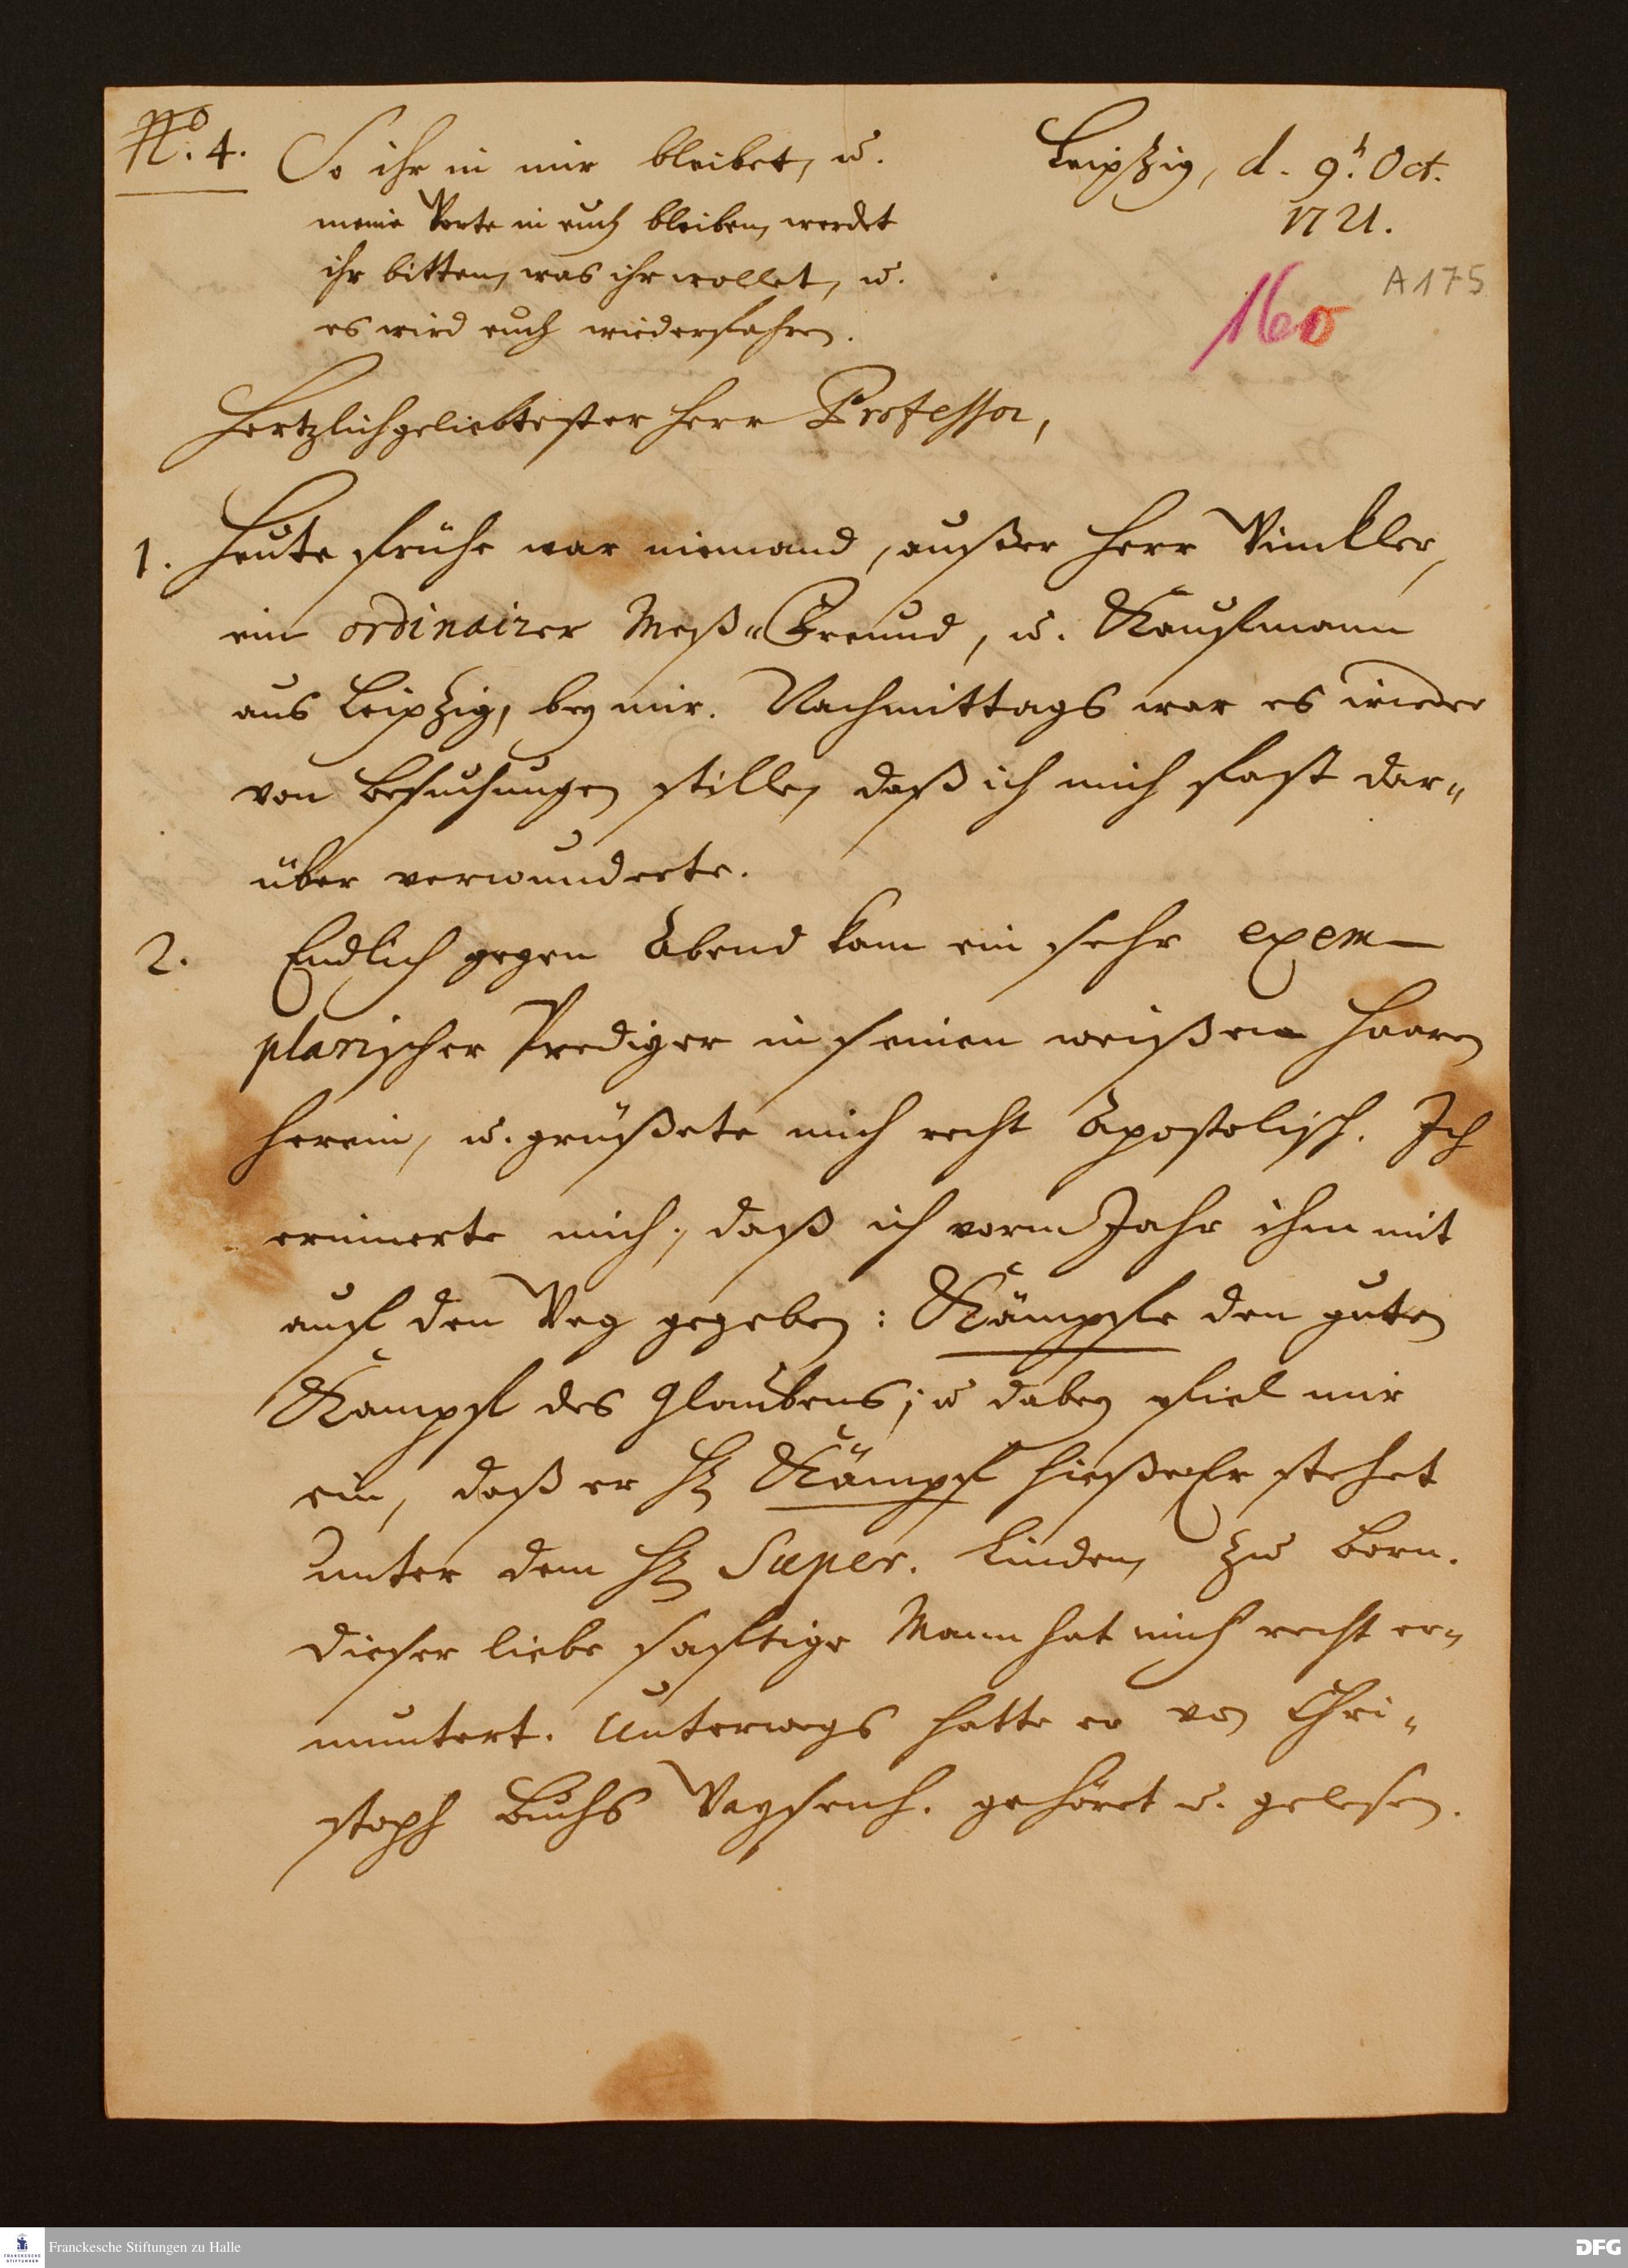 No. 4.
So ihr in mir bleibet, u.
Leipzig, d. 9. Oct.
1721.
meine Worte in euch bleiben, werdet
ihr bitten, was ihr wollet, u.
A 175
es wird euch wiederfahren.
160
Hertzlichgeliebtester Herr Professor,
1. Heute frühe war niemand, außer Herr Winckler,
ein ordinairer Meß-Freund, u. Kaufmann
aus Leipzig, bey mir. Nachmittags war es wieder
von Besuchungen stille, daß ich mich fast dar-
über verwunderte.
2. Endlich gegen Abend kam ein sehr exem-
plarischer Prediger in seinen weißen Haaren
herein, u. grüßete mich recht Apostolisch. Ich
erinnerte mich, daß ich vorm Jahr ihm mit
auf den Weg gegeben: Kämpfe den guten
Kampf des Glaubens; u dabey fiel mir
ein, daß er H. Kämpf hieße. Er stehet
unter dem H. Super. Linden, zu Born.
Dieser liebe saftige Mann hat mich recht er-
muntert. Unterwegs hatte er von Chri-
stoph Buchs Waysenh. gehöret u. gelesen.
Franckesche Stiftungen zu Halle
FRANCKESCHE
STIFTUNGEN
DFG